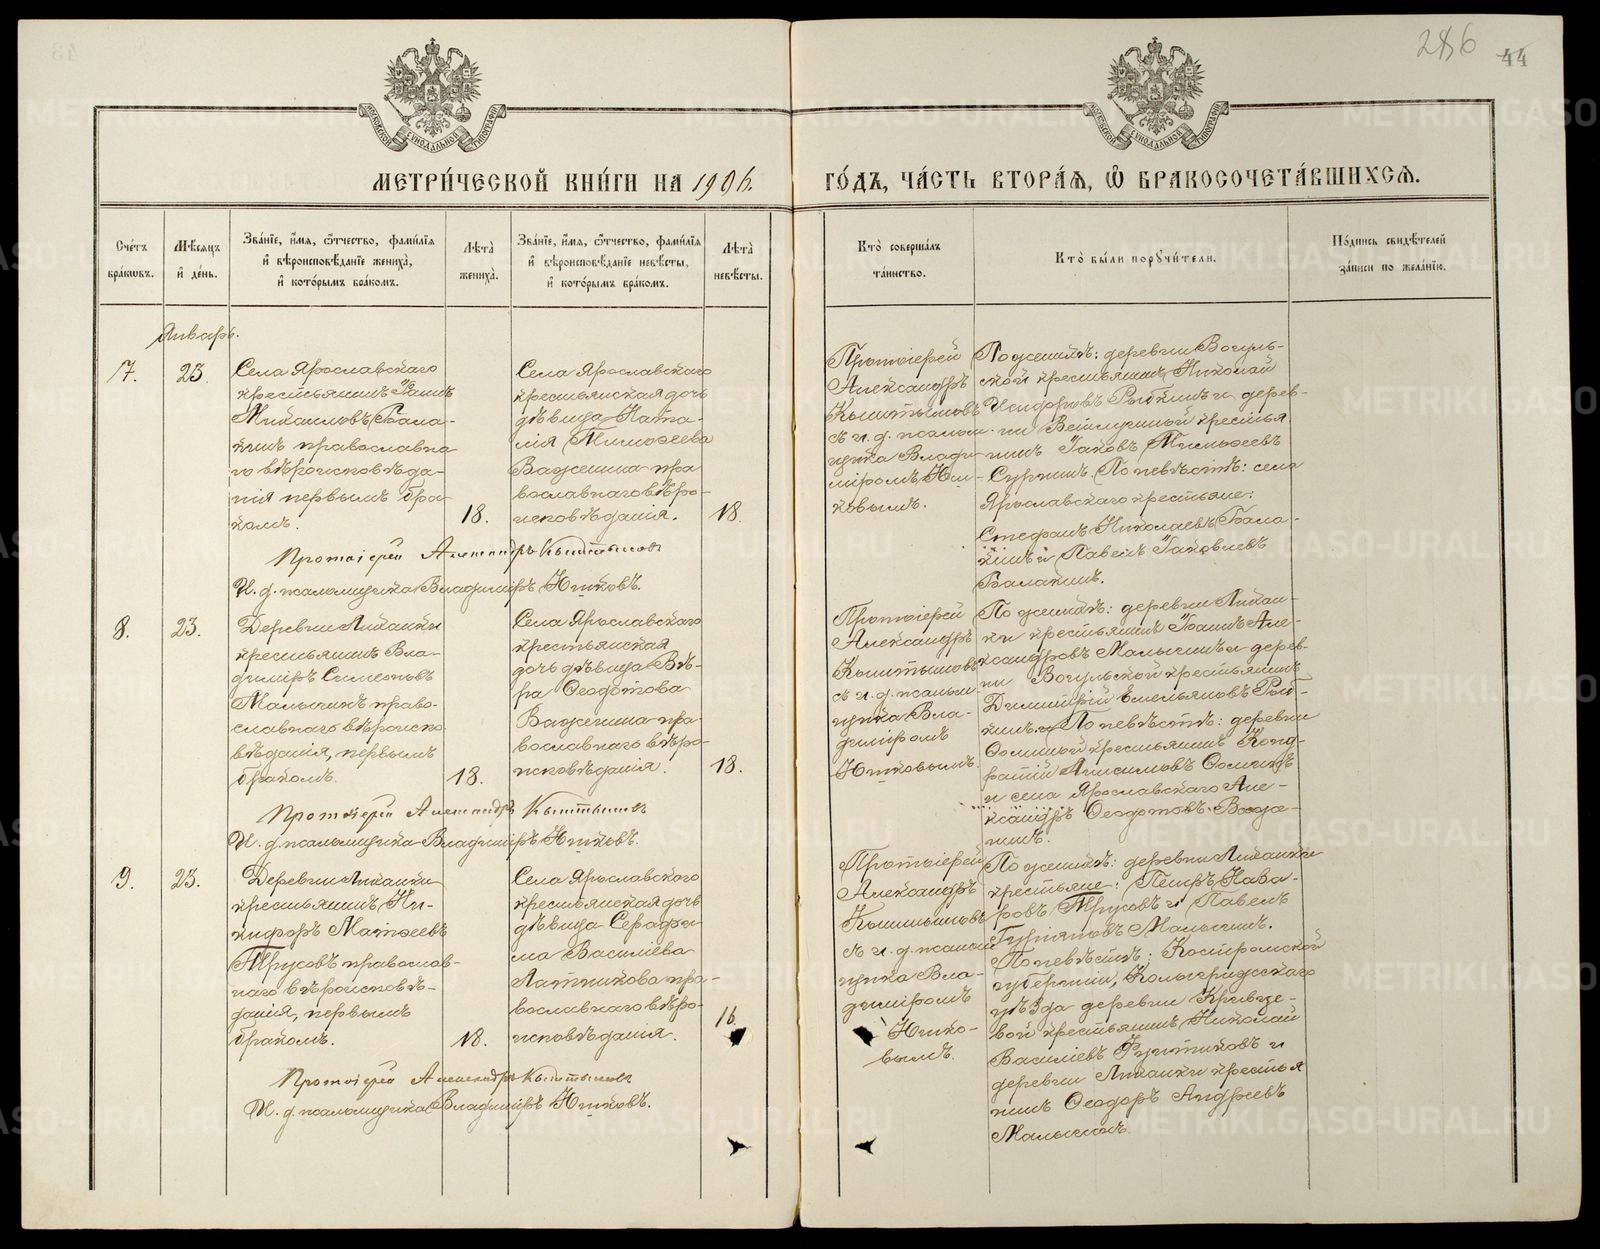 286 44
МЕТРИ́ЧЕСКОЙ КНИ́ГИ НА 1906.
ГО́ДЪ, ЧА́СТЬ ВТОРА́Я, Ѽ БРАКОСОЧЕТА́ВШИХСЯ.
Сче́тъ
бра́кωвъ.
Мѣ́сяцъ
и҆ де́нь.
Зва́нїе, и҆́мя, ѻ҆́тчество, фамѝлїя
и҆ вѣроисповѣ́данїе жениха̀,
и҆ кото́рымъ бра́комъ.
Лѣ́та
жениха̀.
Зва́нїе, и҆́мя, ѻ҆́тчество, фамѝлїя
и҆ вѣроисповѣ́данїе невѣ́сты,
и҆ кото́рымъ бра́комъ.
Лѣ́та
невѣ́сты.
Кто̀ соверша́лъ
та́инство.
Кто̀ бы́ли порꙋчи́тели.
По́дпись свидѣ́телей
за́писи по жела́нїю.
Январь.
7.
23.
Села Ярославскаго
крестьянинъ Іоаннъ
Михаиловъ Бала-
кинъ православна
го вѣроисповѣда-
нія первымъ бра-
комъ.
18.
Села Ярославскаго
крестьянская дочь
дѣвица Ната-
лія Тимоѳеева
Важенина пра
вославнаго вѣро-
исповѣданія.
18.
Протоіерей
Александръ
Кыштымовъ
съ и. д. псалом-
щика Влади-
міромъ
По женихѣ: деревни Вогуль-
ской крестьянинъ Николай
Исидоровъ Рыбкинъ и дерев-
ни крестья
нинъ Іаковъ Тимоѳеевъ
По невѣстѣ: села
Ярославскаго крестьяне:
Стефанъ Николаевъ Бала-
кинъ и Павелъ Іаковлевъ
Балакинъ.
Протоіерей Александръ Кыштымовъ
И. д. псаломщика Владиміръ
8.
23.
Деревни Личанки
крестьянинъ Вла-
диміръ Симеоновъ
Малыгинъ право-
славнаго вѣроиспо-
вѣданія, первымъ
бракомъ.
18.
Села Ярославскаго
крестьянская
дочь дѣвица Вѣ-
ра Ѳеодотова
Важенина пра-
вославнаго вѣро-
исповѣданія.
18.
Протоіерей
Александръ
Кыштымовъ
съ и. д. псалом-
щика Вла-
диміромъ
По женихѣ: деревни Личан-
ки крестьянинъ Іоаннъ Але-
ксандровъ Малыгинъ и дерев-
ни Вогульской крестьянинъ
Димитрій Емельяновъ Рыб-
кинъ. По невѣстѣ: деревни
крестьянинъ Конд-
ратій Анисимовъ
и села Ярославскаго Але-
ксандръ Ѳеодотовъ Важе-
нинъ.
Протоіерей Александръ Кыштымовъ
И. д. псаломщика Владиміръ
9.
23.
Деревни Личанки
крестьянинъ Ни-
кифоръ Матѳеевъ
Трусовъ православ-
наго вѣроисповѣ-
данія, первымъ
бракомъ.
18.
Села Ярославскаго
крестьянская дочь
дѣвица Серафи-
ма Василіева
пра-
вославнаго вѣро-
исповѣданія.
16.
Протоіерей
Александръ
Кыштымовъ
съ и. д. псалом
щика Вла-
диміромъ
По женихѣ: деревни Личанки
крестьяне: Петръ Наза-
ровъ Трусовъ и Павелъ
Малыгинъ.
По невѣстѣ: Костромской
губерніи, Кологривскаго
уѣзда деревни
крестьянинъ Николай
Василіевъ и
деревни Личанки крестья
нинъ Ѳеодоръ Андреевъ
Малыгинъ.
Протоіерей Александръ Кыштымовъ
И. д. псаломщика Владиміръ
METRIKI.GASO-URAL.RU